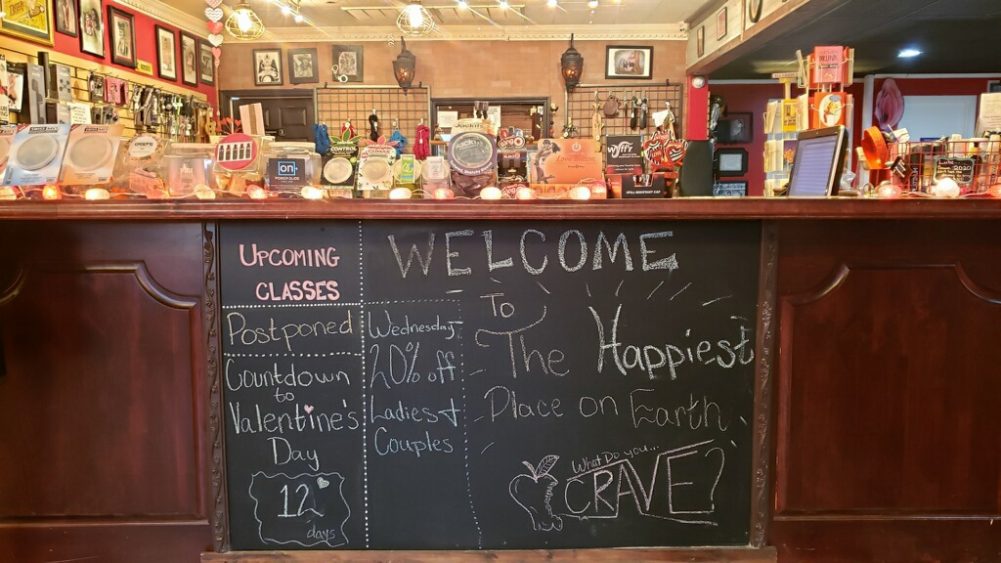 UPCOMING
CLASSES
Postponed
Countdown
to
Valentine's
Day
12
days
Wednesday
20% off
Ladies &
Couples
WELCOME
To
The Happiest
Place on Earth
What Do you...
CRAVE?
CONTROL
on
wyffr